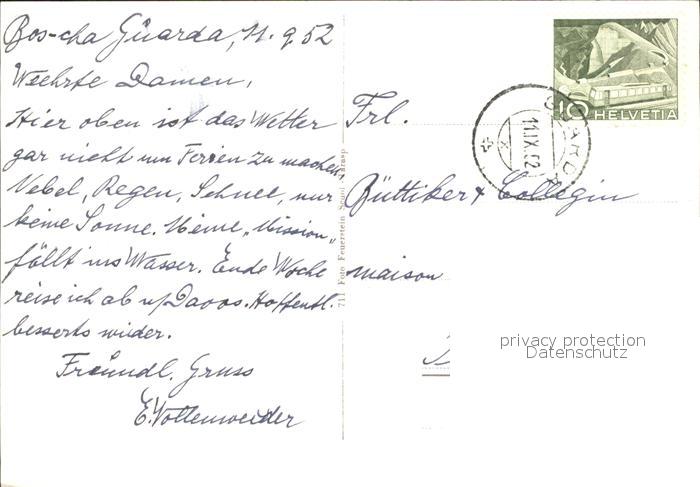 Bos-cha Guarda, 11.9.52
Wehrte Damen,
Hier oben ist das Wetter
gar nicht um Ferien zu machen,
Nebel, Regen, Schnee, nur
keine Sonne. Meine "Mission"
fällt ins Wasser. Ende Woche
reise ich ab n/Davos. Hoffentl.
besserts wieder.
Freundl. Gruss
E. Vollenweider
711 Foto Feuerstein Scuol Tarasp
10
HELVETIA
GUARDA
11.IX.52
Frl.
Büttiker & Collegin
maison
privacy protection
Datenschutz